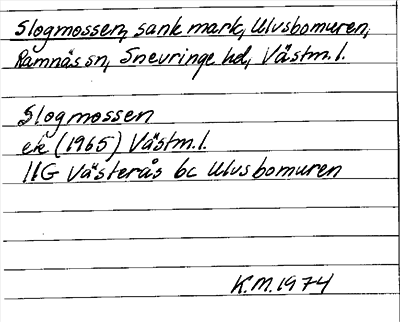 Slogmossen, sank mark, Ulvsbomuren,
Ramnäs sn, Snevringe hd, Västm.l.
Slogmossen
ek (1965) Västm.l.
11G Västerås 6c Ulvsbomuren
K.M. 1974